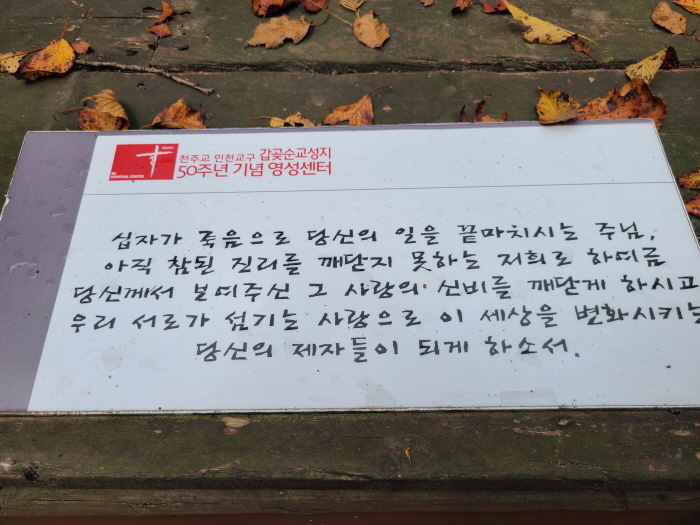 천주교 인천교구 갑곶순교성지
50주년 기념 영성센터
SPIRITUAL CENTER
십자가 죽음으로 당신의 일을 끝마치시는 주님,
아직 참된 진리를 깨닫지 못하는 저희로 하여금
당신께서 보여주신 그 사랑의 신비를 깨닫게 하시고
우리 서로가 섬기는 사랑으로 이 세상을 변화시키는
당신의 제자들이 되게 하소서.